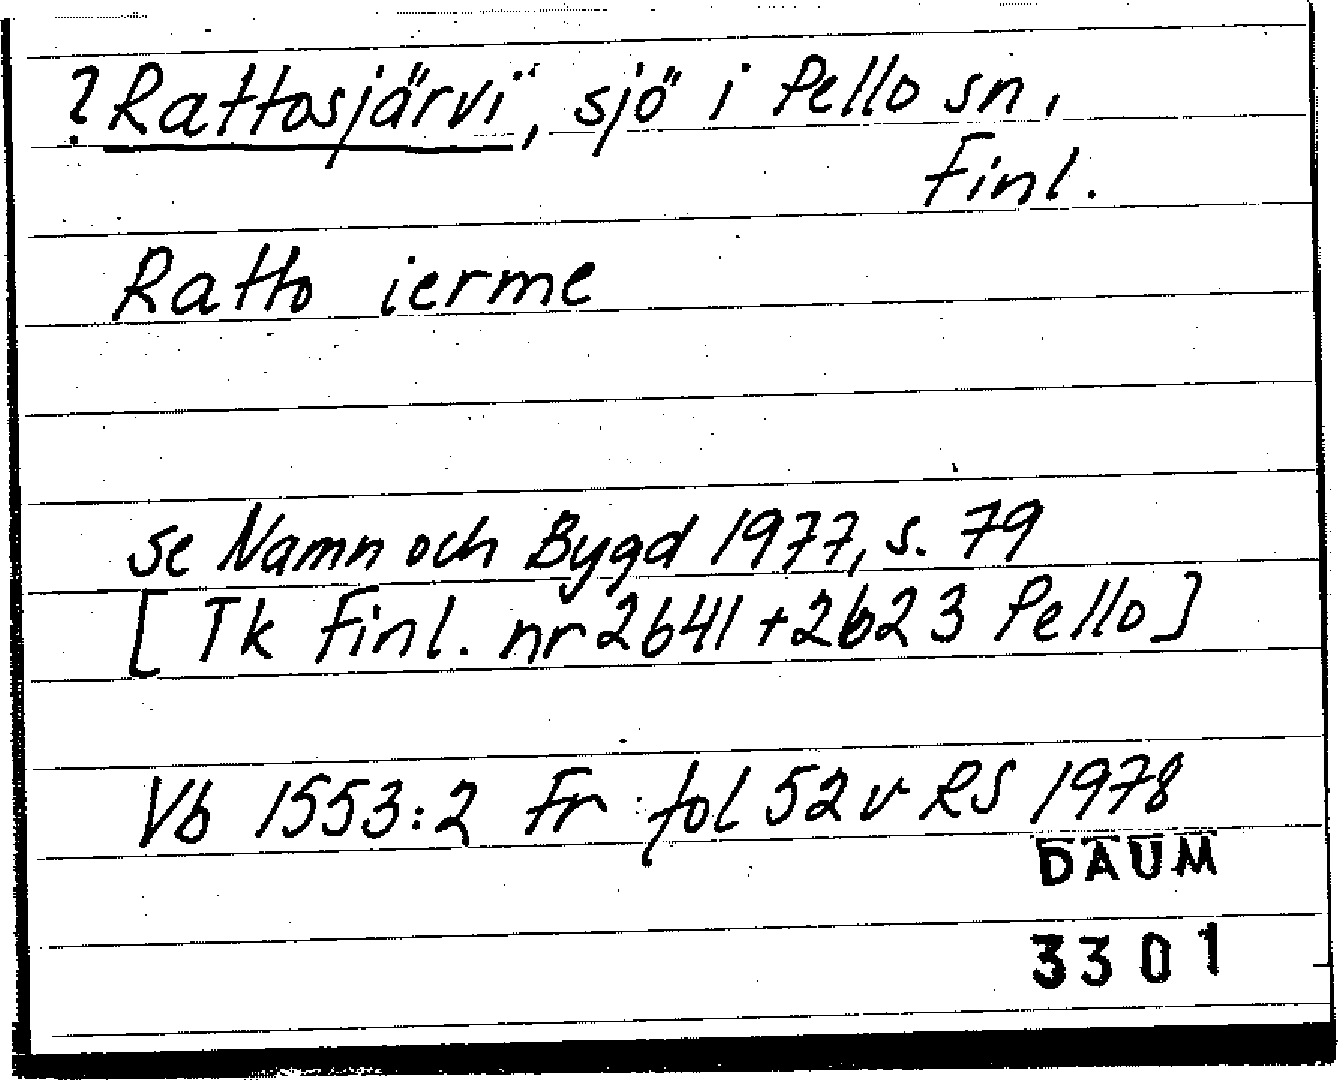 ?Rattosjärvi, sjö i Pello sn,
Finl.
Ratto ierme
se Namn och Bygd 1977, s. 79
[Tk Finl. nr 2641+2623 Pello]
Vb 1553:2 Fr fol 52 v RS 1978
DAUM
3301